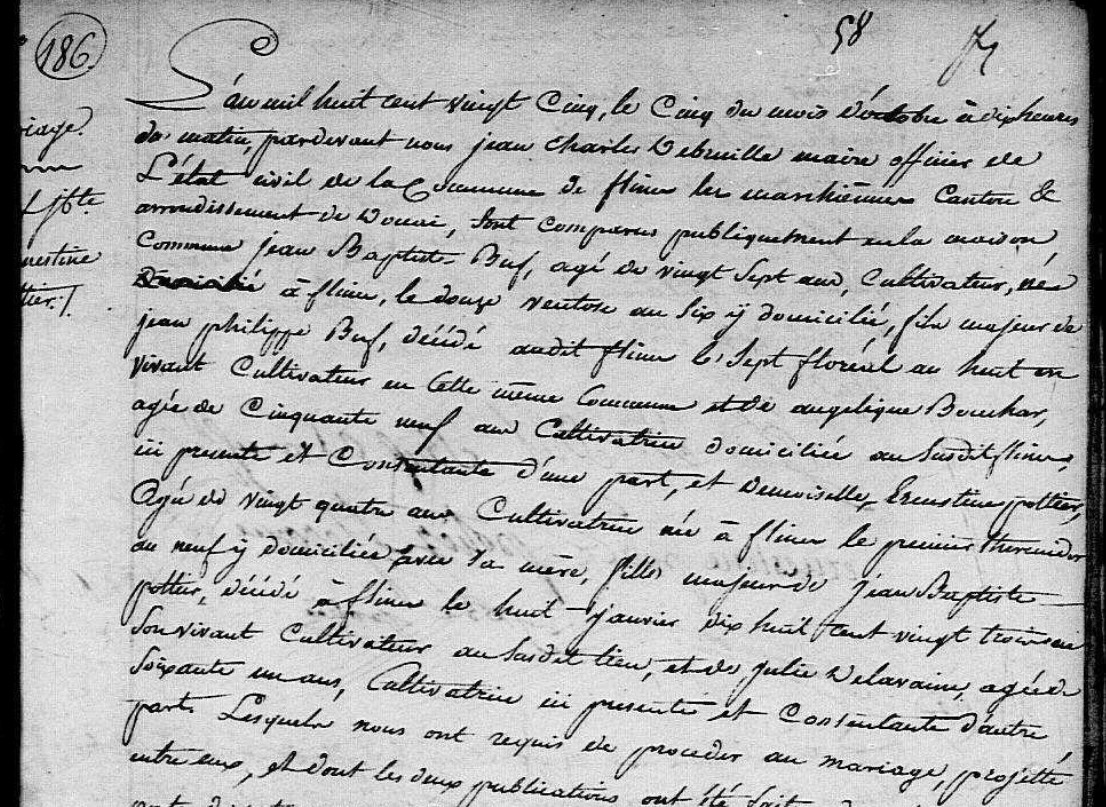 58
186
L'an mil huit cent vingt cinq, le cinq du mois d'octobre à dix heures
du matin, pardevant nous jean Charles Debruille maire officier de
L'état civil de la Commune de flines lez marchiennes Canton &
arrondissement de Douai, sont comparus publiquement en la maison
Commune jean Baptiste Buf, agé de vingt sept ans, Cultivateur, né
à flines, le douze ventose an six y domicilié, fils majeur de
jean philippe Buf, décédé audit flines le sept floréal an huit en
vivant Cultivateur en cette même Commune et de angelique Bouchar,
agée de Cinquante neuf ans Cultivatrice domiciliée au susdit flines,
ici presente et Consentante d'une part, et demoiselle, Ernestine pottier,
Agée de vingt quatre ans Cultivatrice née à flines le premier thermidor
an neuf y domiciliée avec sa mère, fille majeur de jean Baptiste
pottier, décédé à flines le huit janvier dix huit cent vingt trois en
son vivant Cultivateur au susdit lieu, et de julie Delavaine, agée de
soixante un ans, Cultivatrice ici presente et Consentante d'autre
part. Lesquels nous ont requis de proceder au mariage, projetté
entre eux, et dont les deux publications ont été fait
iage.
jbte
nestine
tier./.